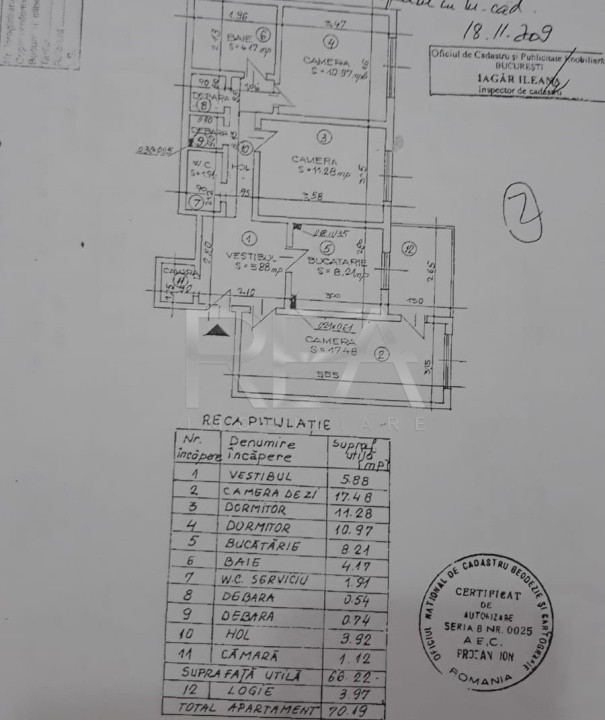 18.11.2009
Oficiul de Cadastru şi Publicitate Imobiliară
BUCUREŞTI
IAGĂR ILEANA
Inspector de cadastru
2
1.96
3.47
BAIE 6
S=4.17mp
4
CAMERA
S=10.97mp
DEBARA
8
DEBARA
9
10
HOL
3
CAMERA
S=11.28mp
3.58
W.C.
S=1.91
7
95
1
VESTIBUL
S=5.88mp
2.50
5
BUCATARIE
S=8.21mp
12
2.65
CAMARA
11
2.10
300
150
CAMERA
S=17.48
2
555
3.15
REA
IMOBILIARE
RECAPITULAŢIE
Nr. încăpere Denumire încăpere Supraf utilă (mp)
1 VESTIBUL 5.88
2 CAMERA DE ZI 17.48
3 DORMITOR 11.28
4 DORMITOR 10.97
5 BUCĂTĂRIE 8.21
6 BAIE 4.17
7 W.C. SERVICIU 1.91
8 DEBARA 0.54
9 DEBARA 0.74
10 HOL 3.92
11 CĂMARĂ 1.12
SUPRAFAŢĂ UTILĂ 66.22
12 LOGIE 3.97
TOTAL APARTAMENT 70.19
OFICIUL NAŢIONAL DE CADASTRU GEODEZIE ŞI CARTOGRAFIE
CERTIFICAT
DE
AUTORIZARE
SERIA B NR. 0025
A.E.C.
ION
ROMANIA